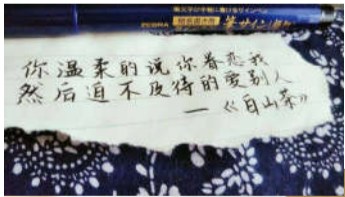 ZEBRA 筆サイン
你温柔的说你眷恋我
然后迫不及待的爱别人
—《白山茶》